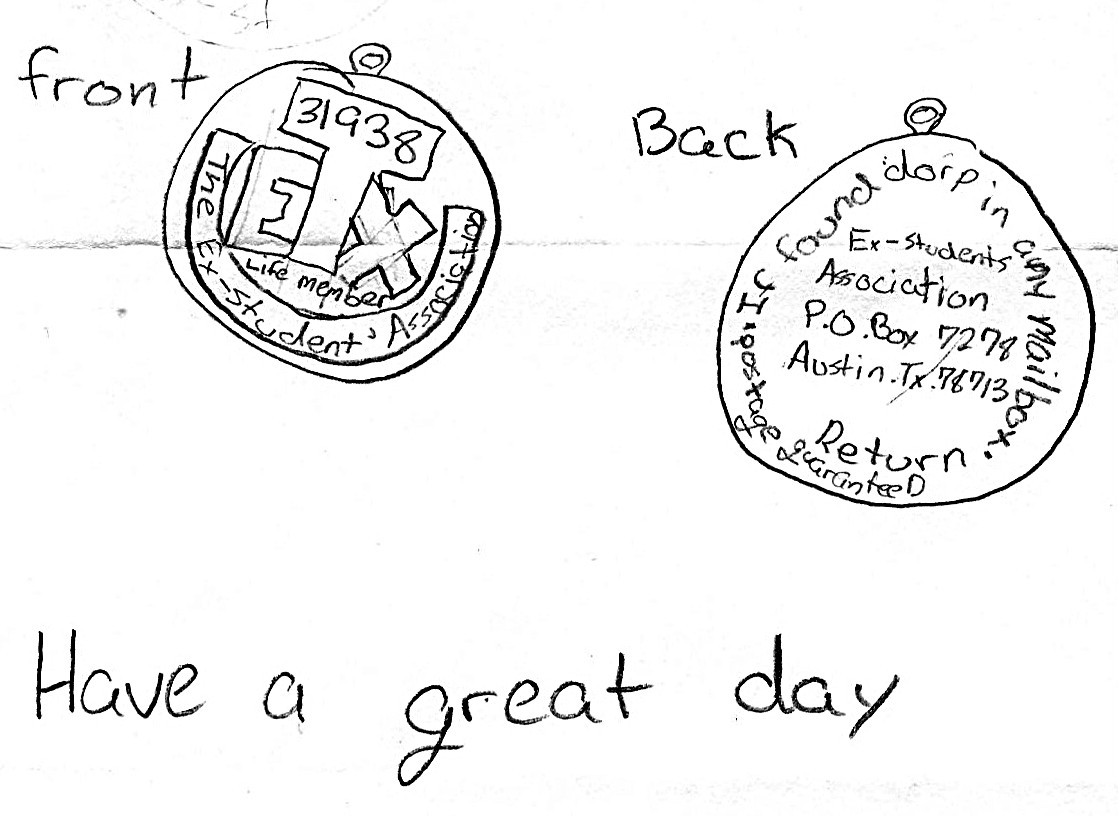 front
31938
EX
Life member
The Ex-Student's Association
Back
If found dorp in any Mailbox.
Ex-Students
Association
P.O.Box 7278
Austin.Tx.78713
Return
postage guaranteeD
Have a great day